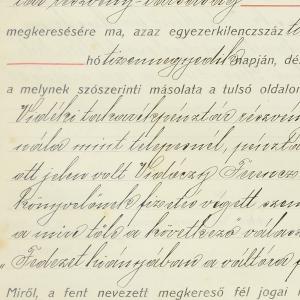 megkeresésére ma, azaz egyezerkilenczszáz
hó tizennegyedik napján, dé
a melynek szószerinti másolata a tulsó oldalon
Vidéki takarékpénztár részvén
nála mint telepesnél, pénztá
ott jelen volt Vidóczy Ferencz
könyvelőnek fizetés végett szem
a mire tőle a következő válasz
"Fedezet hiányában a váltóra f
Miről, a fent nevezett megkereső fél jogai